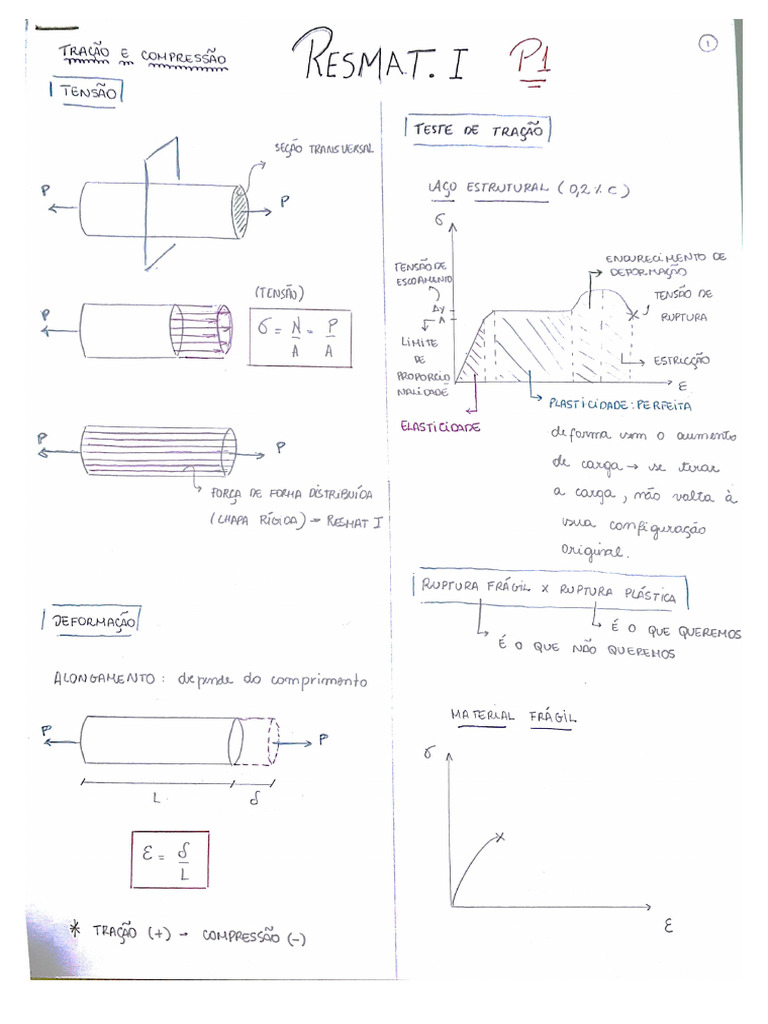 RESMAT. I P1
1
TRAÇÃO E COMPRESSÃO
TENSÃO
SEÇÃO TRANSVERSAL
P
P
(TENSÃO)
P
σ = N/A = P/A
P
P
FORÇA DE FORMA DISTRIBUÍDA
(CHAPA RÍGIDA) → RESMAT I
DEFORMAÇÃO
ALONGAMENTO: depende do comprimento
P
P
L
δ
ε = δ/L
* TRAÇÃO (+) → COMPRESSÃO (-)
TESTE DE TRAÇÃO
AÇO ESTRUTURAL (0,2% C)
σ
TENSÃO DE
ESCOAMENTO
LIMITE
DE
PROPORCIO
NALIDADE
ENDURECIMENTO DE
DEFORMAÇÃO
TENSÃO DE
RUPTURA
ESTRICÇÃO
ε
PLASTICIDADE: PERFEITA
ELASTICIDADE
deforma sem o aumento
de carga → se tirar
a carga, não volta à
sua configuração
original.
RUPTURA FRÁGIL X RUPTURA PLÁSTICA
É O QUE QUEREMOS
É O QUE NÃO QUEREMOS
MATERIAL FRÁGIL
σ
ε